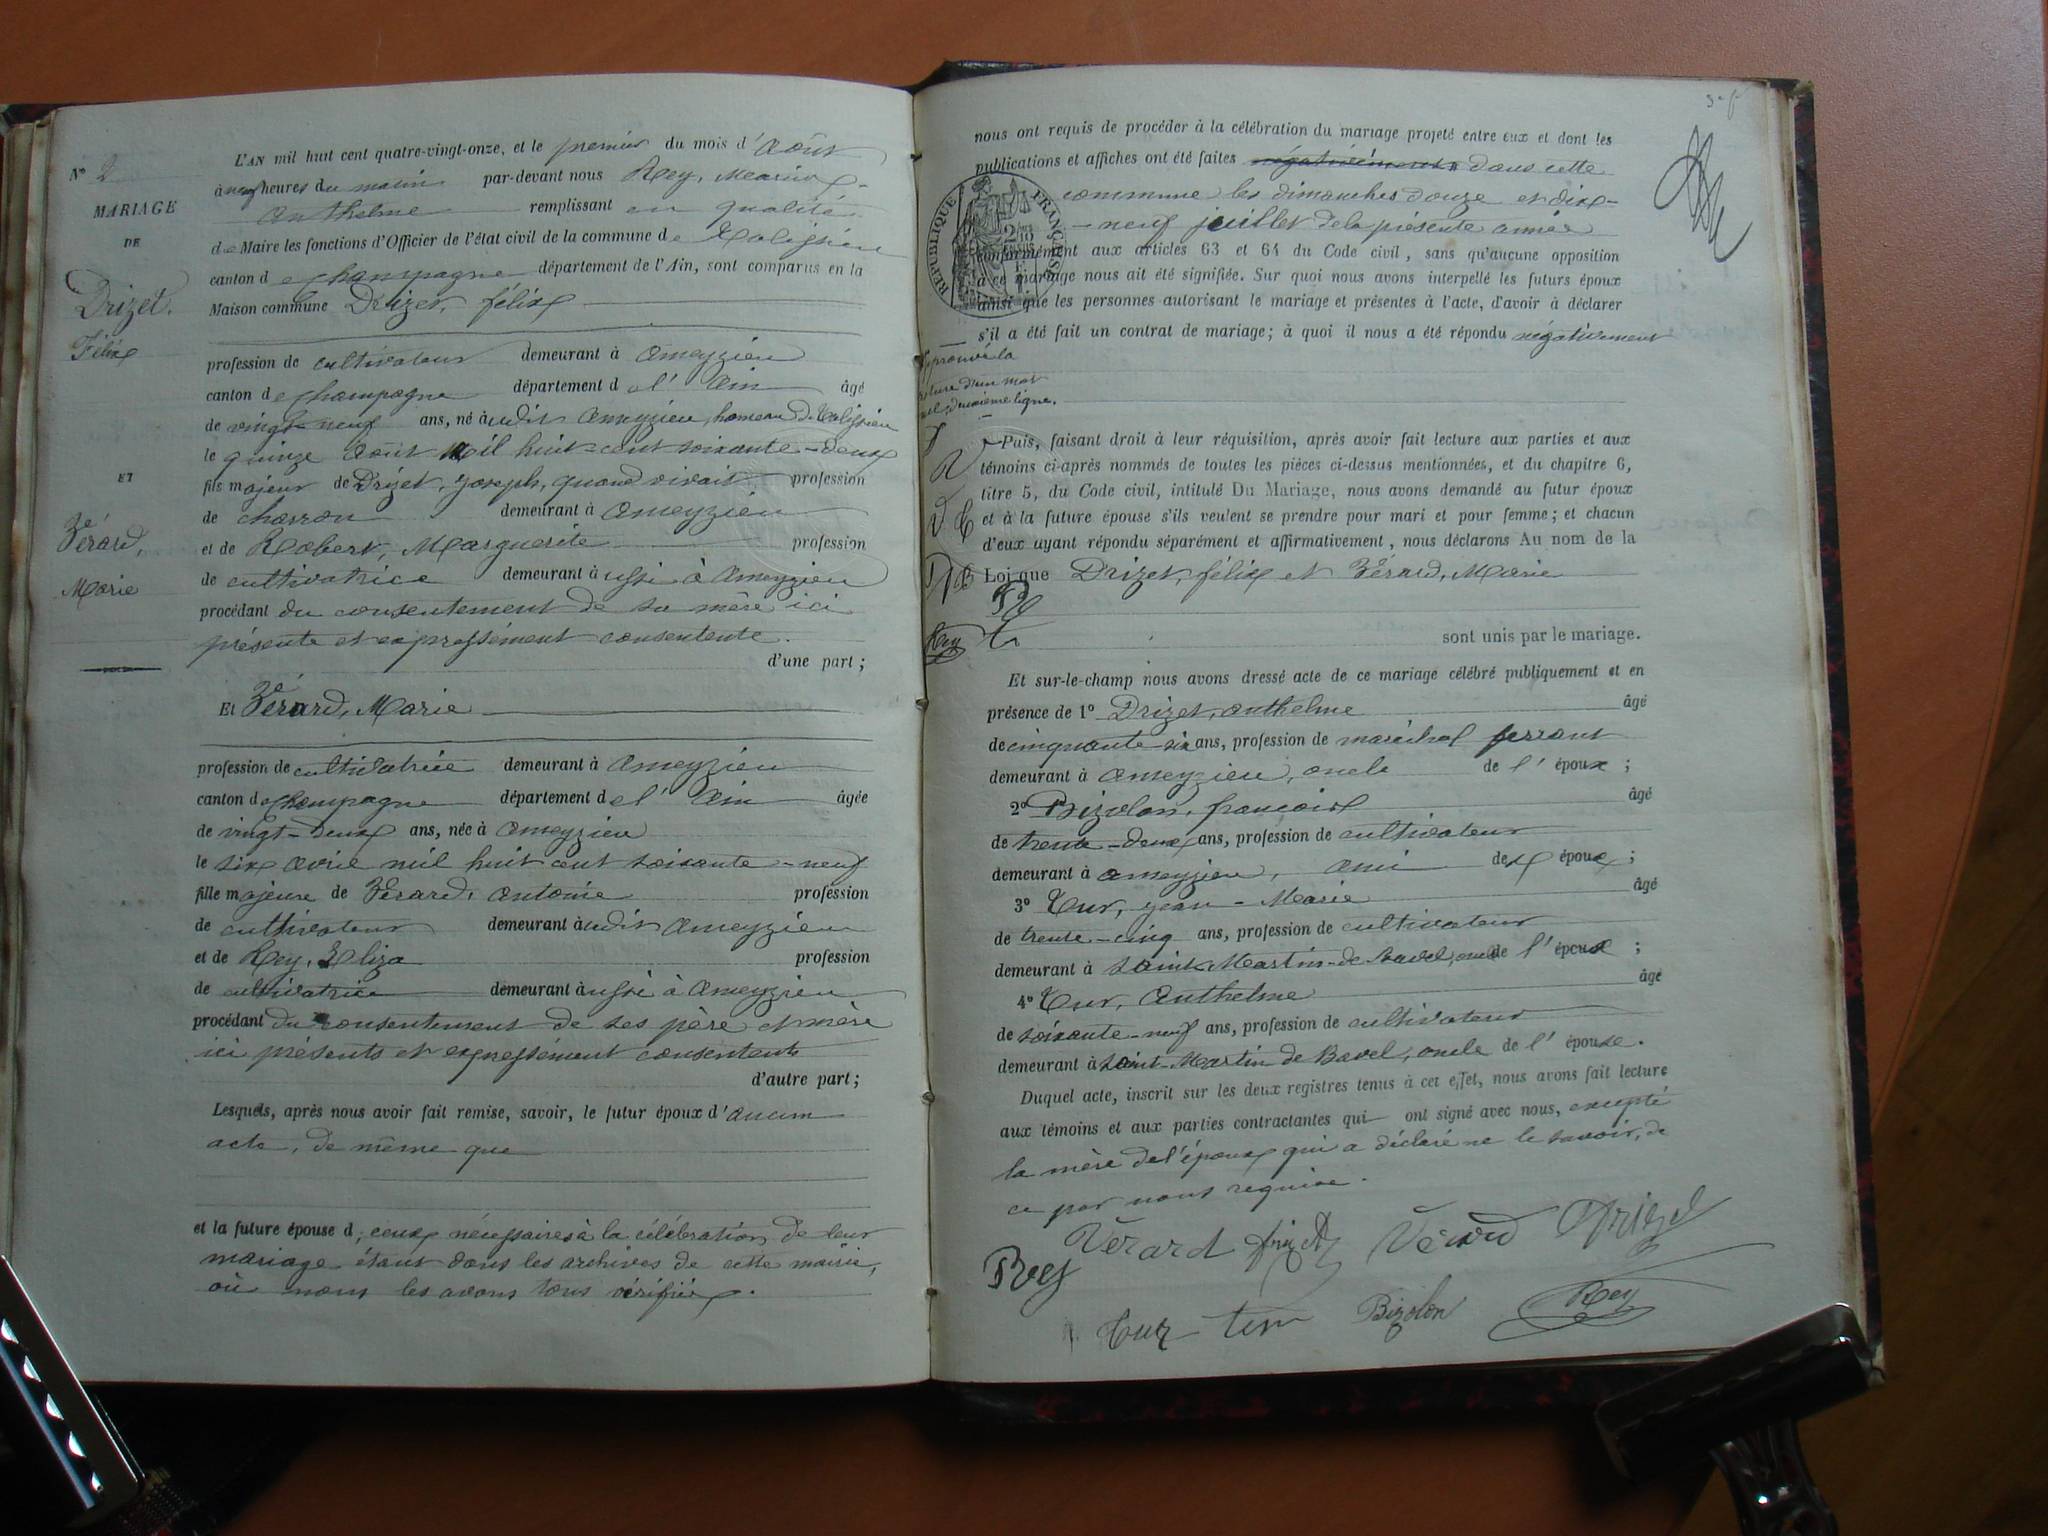 N° 2
MARIAGE
DE
Drizet,
Félix
ET
Vérard,
Marie
L'AN mil huit cent quatre-vingt-onze, et le premier du mois d'Août
à neuf heures du matin par-devant nous Rey, Marius-
Anthelme remplissant en qualité
de Maire les fonctions d'Officier de l'état civil de la commune de Talissieu
canton de Champagne département de l'Ain, sont comparus en la
Maison commune Drizet, félix
profession de cultivateur demeurant à Ameyzieu
canton de Champagne département de l'Ain âgé
de vingt-neuf ans, né audit Ameyzieu, hameau de Talissieu
le quinze Août mil huit-cent soixante-deux
fils majeur de Drizet, Joseph, quand vivait profession
de charron demeurant à Ameyzieu
et de Robert, Marguerite profession
de cultivatrice demeurant aussi à Ameyzieu
procédant du consentement de sa mère ici
présente et expressément consentente.
d'une part ;
Et Vérard, Marie
profession de cultivatrice demeurant à Ameyzieu
canton de Champagne département de l'Ain âgée
de vingt-deux ans, née à Ameyzieu
le six avril mil huit cent soixante-neuf
fille majeure de Vérard, Antoine profession
de cultivateur demeurant audit Ameyzieu
et de Rey, Eliza profession
de cultivatrice demeurant aussi à Ameyzieu
procédant du consentement de ses père et mère
ici présents et expressément consentents
d'autre part ;
Lesquels, après nous avoir fait remise, savoir, le futur époux d'aucun
acte, de même que
et la future épouse d, ceux nécessaires à la célébration de leur
mariage étant dans les archives de cette mairie,
où nous les avons tous vérifiés.
nous ont requis de procéder à la célébration du mariage projeté entre eux et dont les
publications et affiches ont été faites négativement dans cette
commune les dimanches douze et dix-
-neuf juillet de la présente année
conformément aux articles 63 et 64 du Code civil, sans qu'aucune opposition
à ce mariage nous ait été signifiée. Sur quoi nous avons interpellé les futurs époux
ainsi que les personnes autorisant le mariage et présentes à l'acte, d'avoir à déclarer
s'il a été fait un contrat de mariage ; à quoi il nous a été répondu négativement
RÉPUBLIQUE FRANÇAISE
d'un mot
deuxième ligne.
Puis, faisant droit à leur réquisition, après avoir fait lecture aux parties et aux
témoins ci-après nommés de toutes les pièces ci-dessus mentionnées, et du chapitre 6,
titre 5, du Code civil, intitulé Du Mariage, nous avons demandé au futur époux
et à la future épouse s'ils veulent se prendre pour mari et pour femme ; et chacun
d'eux ayant répondu séparément et affirmativement, nous déclarons Au nom de la
Loi que Drizet, félix et Vérard, Marie
Rey
sont unis par le mariage.
Et sur-le-champ nous avons dressé acte de ce mariage célébré publiquement et en
présence de 1° Drizet, Anthelme âgé
de cinquante-six ans, profession de maréchal ferrant
demeurant à Ameyzieu, oncle de l'époux ;
2° Bizolon, françois âgé
de trente-deux ans, profession de cultivateur
demeurant à Ameyzieu, ami des époux ;
3° Tur, jean-Marie âgé
de trente-cinq ans, profession de cultivateur
demeurant à Saint-Martin-de-Bavel, oncle de l'époux ;
4° Tur, Anthelme âgé
de soixante-neuf ans, profession de cultivateur
demeurant à Saint-Martin de Bavel, oncle de l'épouse.
Duquel acte, inscrit sur les deux registres tenus à cet effet, nous avons fait lecture
aux témoins et aux parties contractantes qui ont signé avec nous, excepté
la mère de l'époux qui a déclaré ne le savoir, de
ce par nous requise.
Vérard Drizet Vérard Drizet
Rey
Tur tur Bizolon Rey